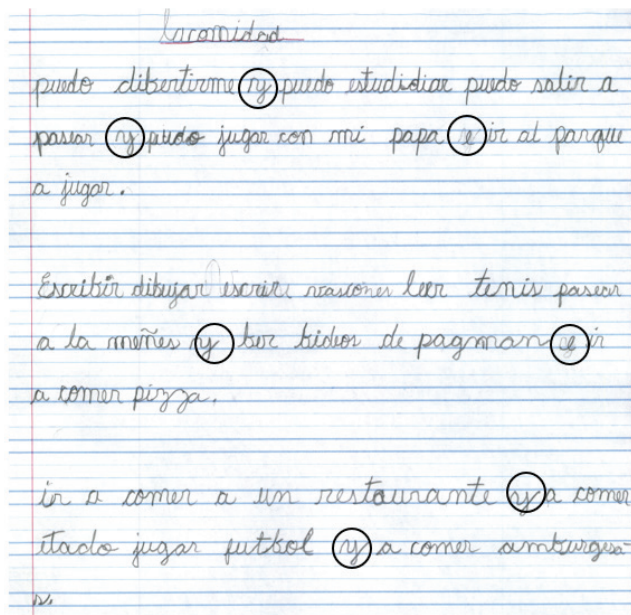 Lacomidad
puedo dibertirme y puedo estudidiar puedo salir a
pasear y puedo jugar con mi papa e ir al parque
a jugar.
Escribir dibujar escrir leer tenis pasear
a la y ber bideos de pagman e ir
a comer pizza.
ir a comer a un restaurante y a comer
elado jugar futbol y a comer amburgesa-
s.